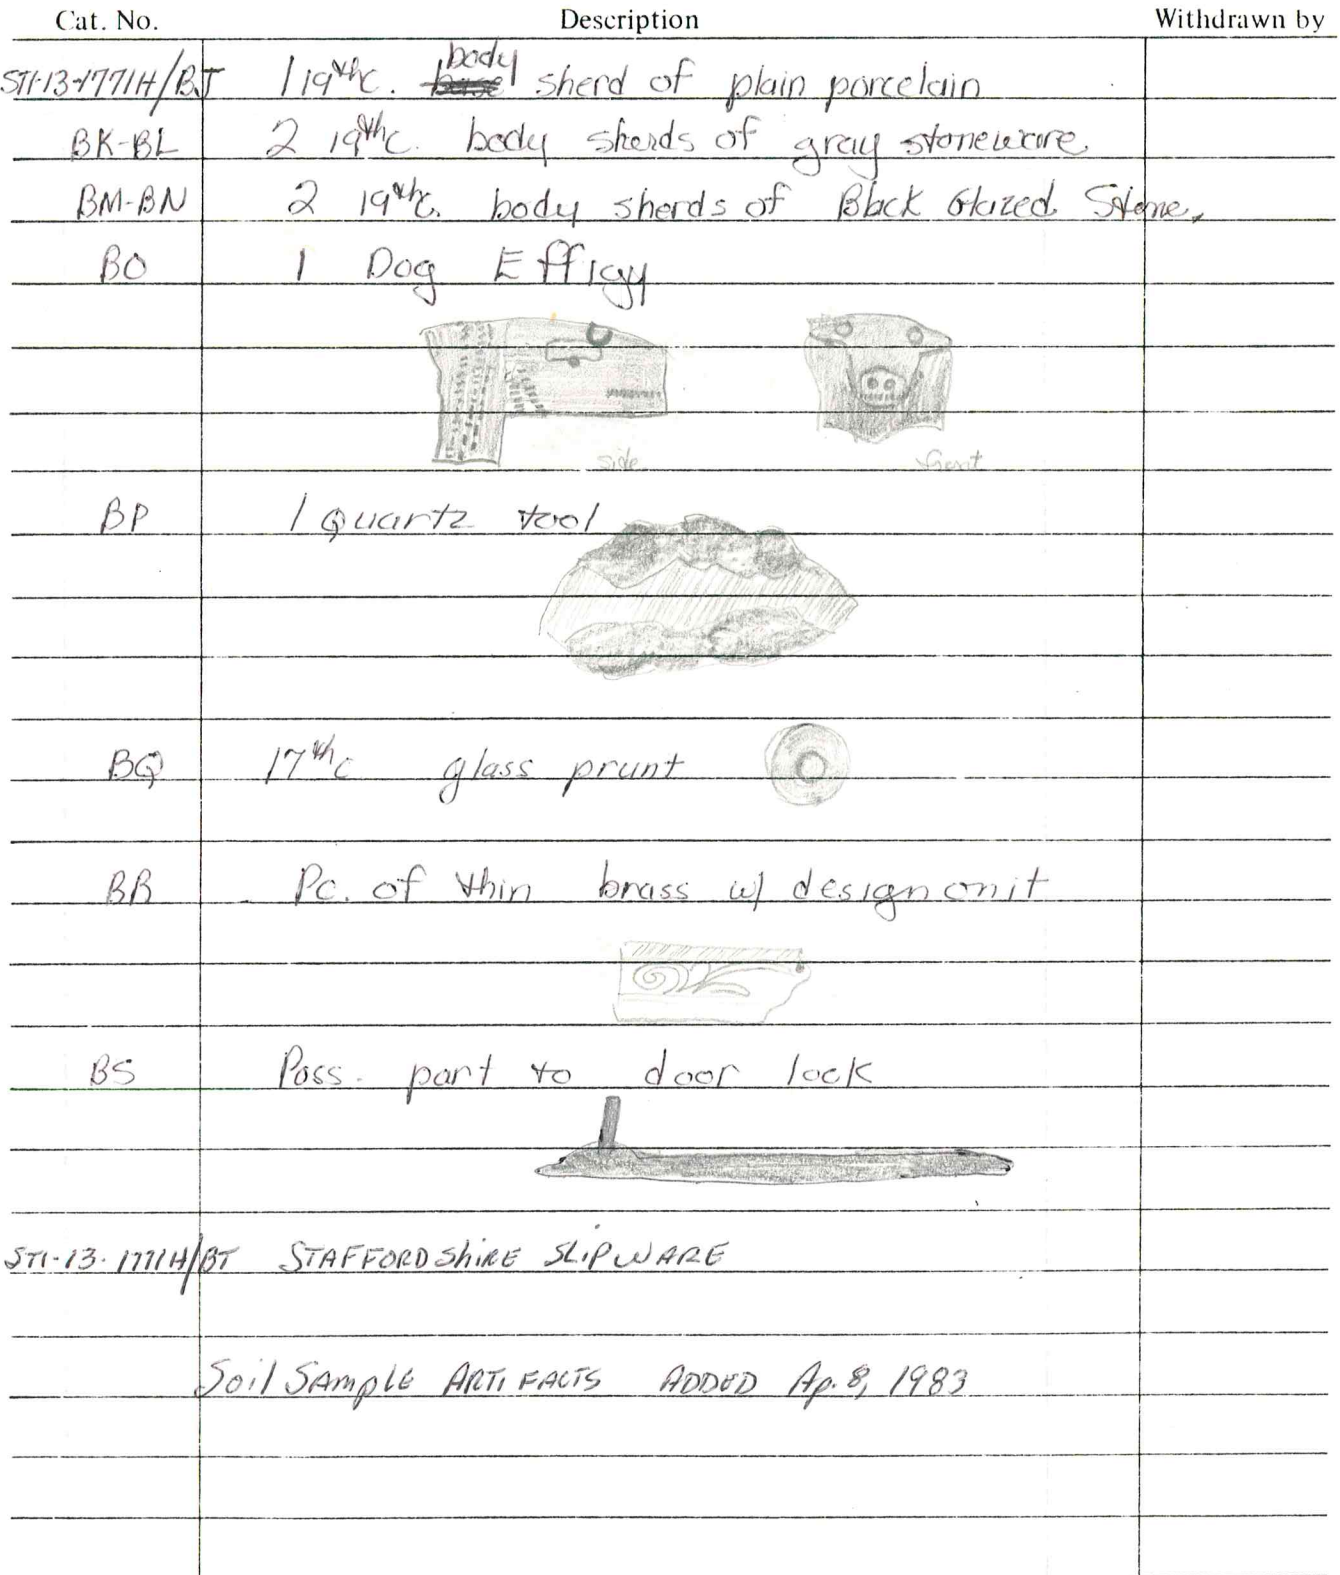 Cat. No. Description Withdrawn by
ST1-13-1771H/BJ 1 19th c. body sherd of plain porcelain
BK-BL 2 19th c. body sherds of gray stoneware
BM-BN 2 19th c. body sherds of Black Glazed Stone.
BO 1 Dog Effigy
side front
BP 1 Quartz tool
BQ 17th c glass prunt
BR Pc. of thin brass w/ design on it
BS Poss. part to door lock
ST1-13-1771H/BT STAFFORDShiRE SLiPWARE
Soil SAMplE ARTiFACTS ADDED Ap. 8, 1983